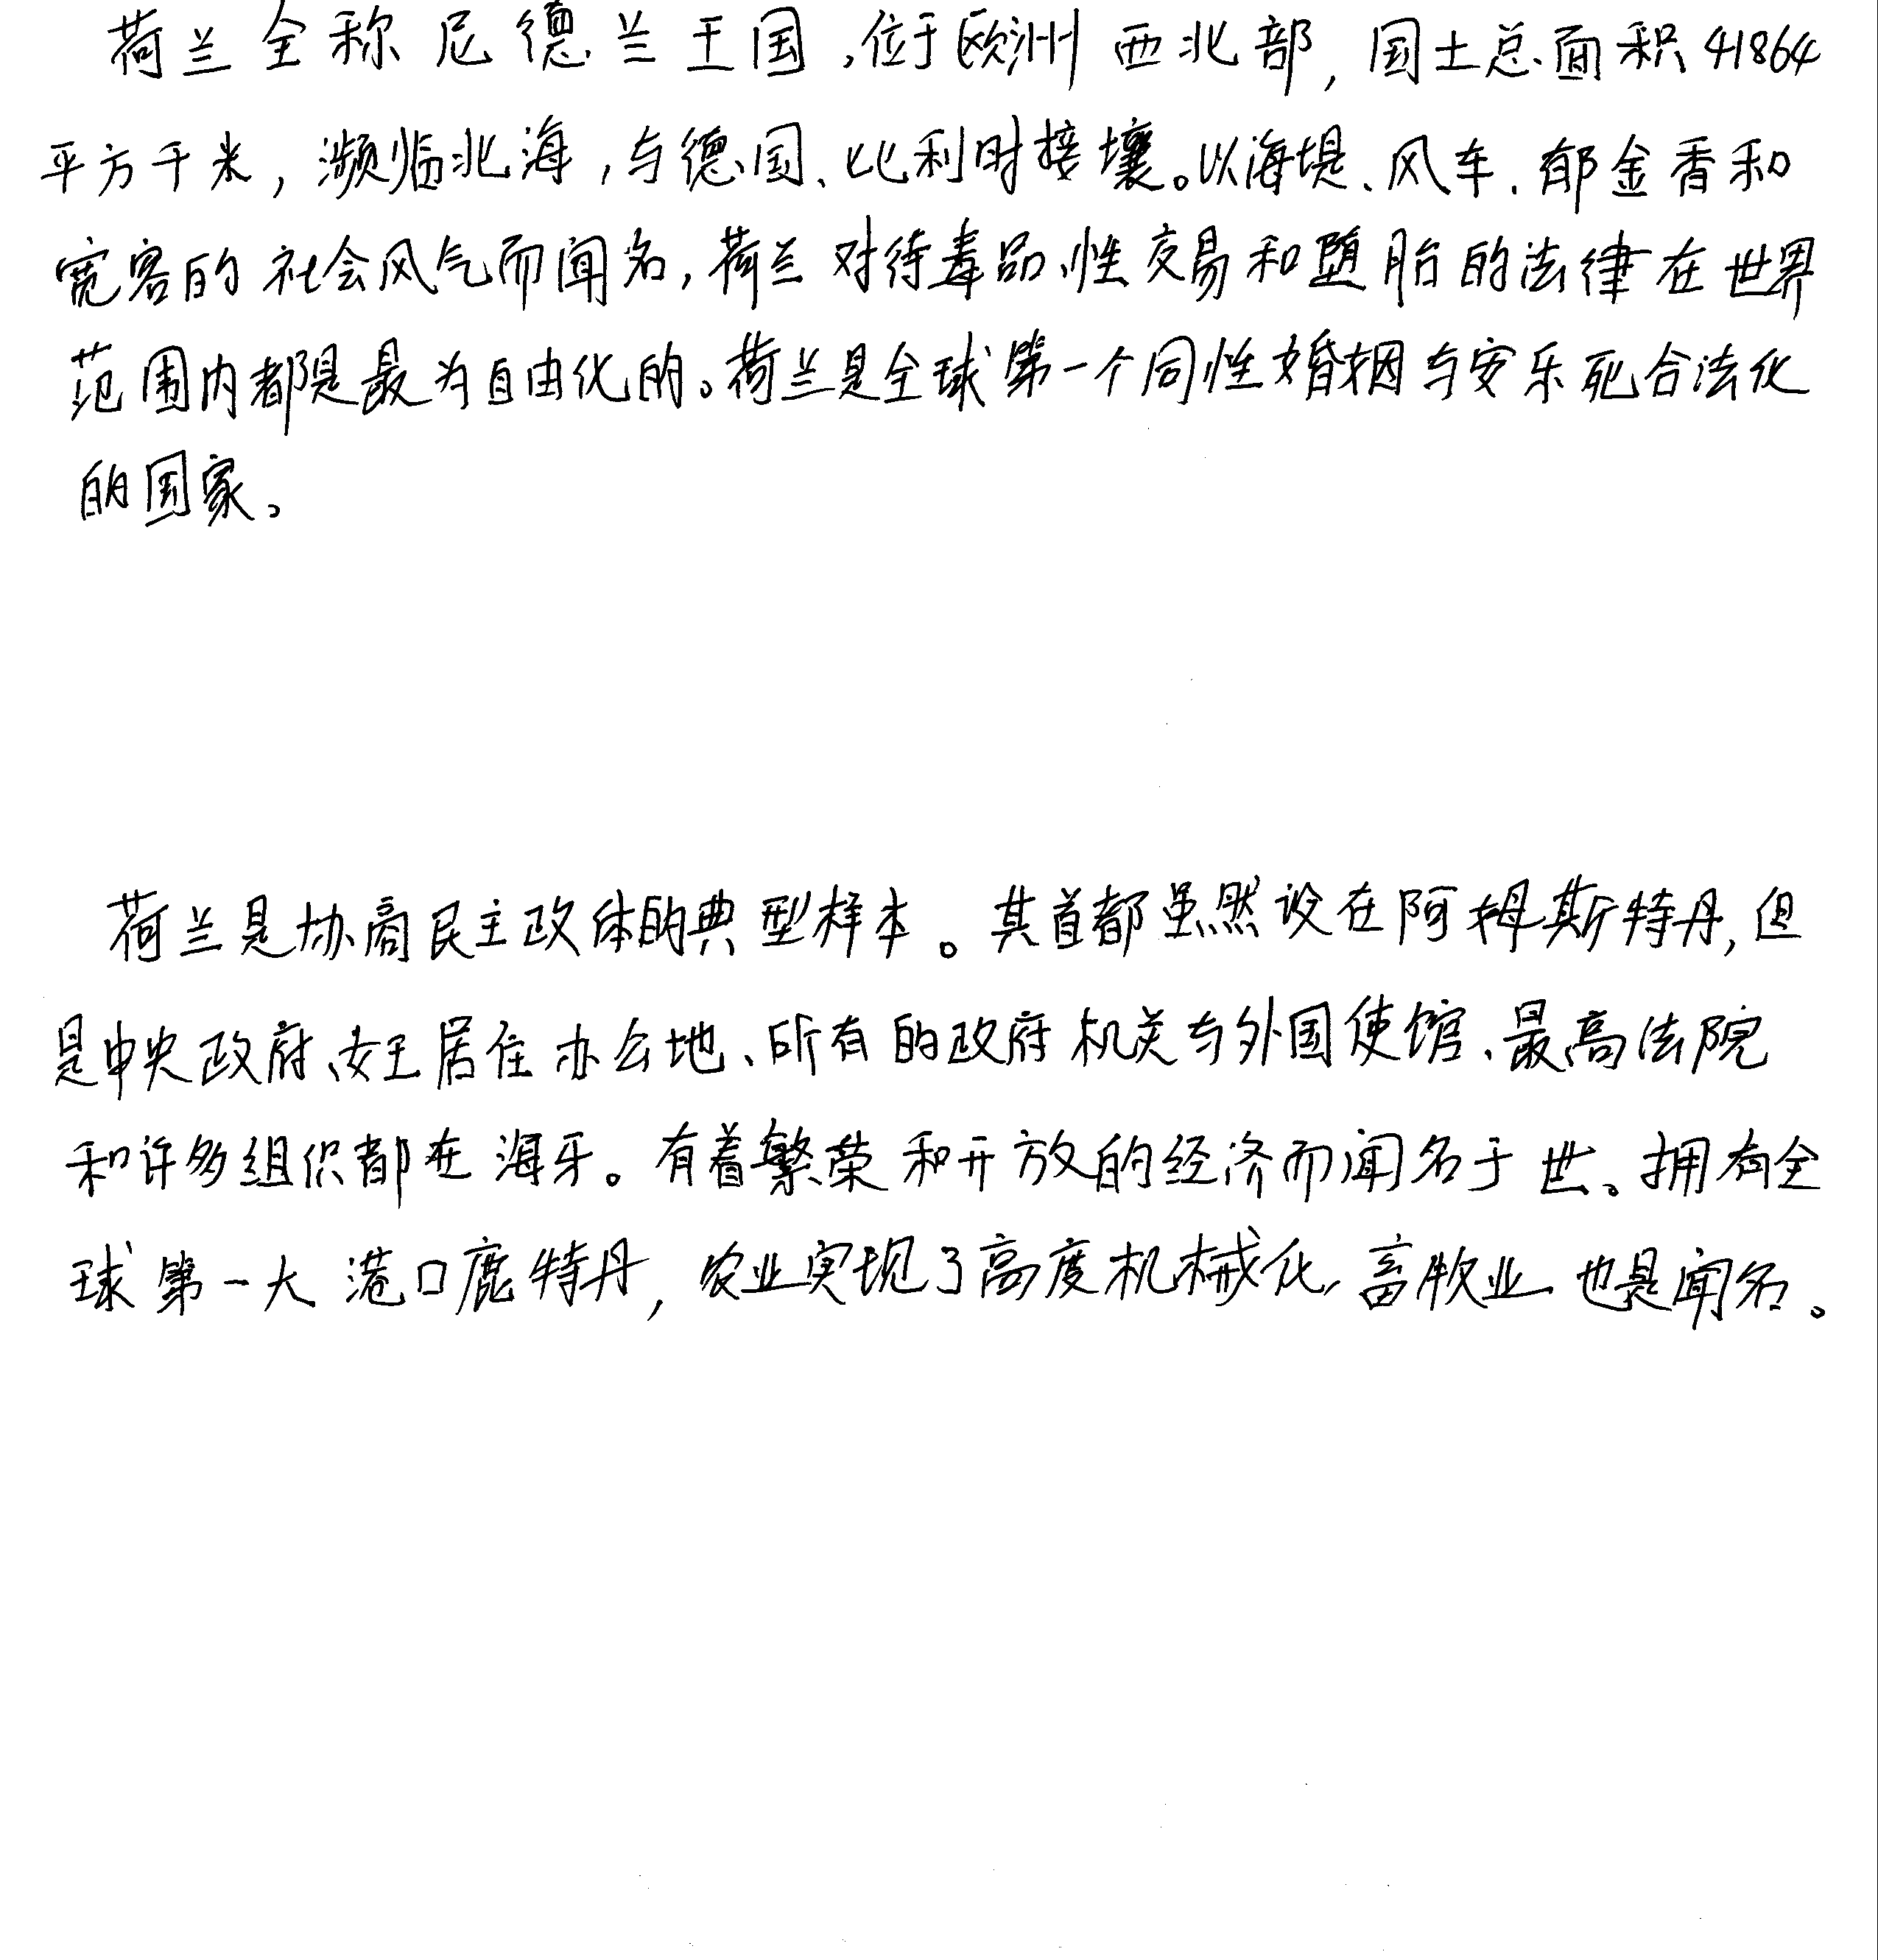 荷兰全称尼德兰王国,位于欧洲西北部,国土总面积41864
平方千米,濒临北海,与德国、比利时接壤。以海堤、风车、郁金香和
宽容的社会风气而闻名,荷兰对待毒品、性交易和堕胎的法律在世界
范围内都是最为自由化的。荷兰是全球第一个同性婚姻与安乐死合法化
的国家。
荷兰是协商民主政体的典型样本。其首都虽然设在阿姆斯特丹,但
是中央政府、女王居住办公地、所有的政府机关与外国使馆、最高法院
和许多组织都在海牙。有着繁荣和开放的经济而闻名于世。拥有全
球第一大港口鹿特丹,农业实现了高度机械化,畜牧业也是闻名。